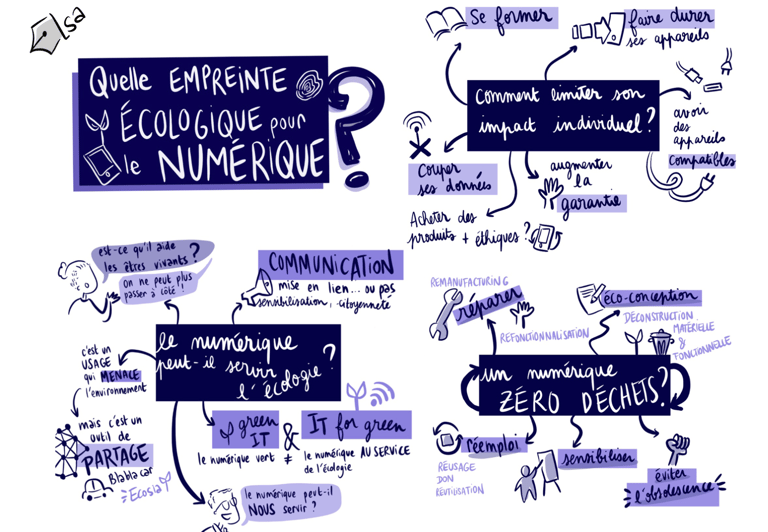 Lsa
Quelle EMPREINTE
ÉCOLOGIQUE pour
le NUMÉRIQUE
?
Se former
faire durer
ses appareils
Comment limiter son
impact individuel?
avoir
des
appareils
compatibles
Couper
ses données
augmenter
la
garantie
Acheter des
produits + éthiques?
est-ce qu'il aide
les êtres vivants?
on ne peut plus
passer à côté!
COMMUNICATION
mise en lien... ou pas
sensibilisation, citoyenneté
le numérique
peut-il servir
l'écologie?
c'est un
USAGE
qui MENACE
l'environnement
mais c'est un
outil de
PARTAGE
Blablacar
Ecosia
green
IT
&
IT for green
le numérique vert ≠ le numérique AU SERVICE
de l'écologie
le numérique peut-il
NOUS servir?
REMANUFACTURING
réparer
REFONCTIONNALISATION
éco-conception
DÉCONSTRUCTION
MATÉRIELLE
&
FONCTIONNELLE
un numérique
ZÉRO DÉCHETS?
réemploi
RÉUSAGE
DON
RÉUTILISATION
sensibiliser
éviter
l'obsolescence